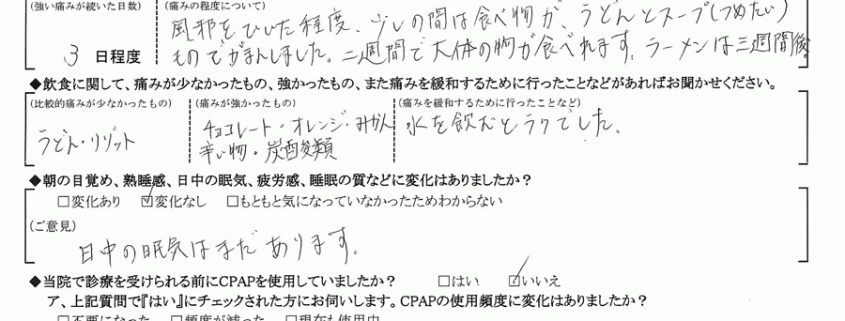 (強い痛みが続いた日数) (痛みの程度について)
風邪をひいた程度、少しの間は食べ物が、うどんとスープ(つめたい)
3 日程度 ものでがまんしました。二週間で大体の物が食べれます。ラーメンは三週間後。
◆飲食に関して、痛みが少なかったもの、強かったもの、また痛みを緩和するために行ったことなどがあればお聞かせください。
(比較的痛みが少なかったもの) (痛みが強かったもの) (痛みを緩和するために行ったことなど)
うどん・リゾット チョコレート・オレンジ・みかん 水を飲むとラクでした。
辛い物・炭酸類
◆朝の目覚め、熟睡感、日中の眠気、疲労感、睡眠の質などに変化はありましたか?
□変化あり ☑変化なし □もともと気になっていなかったためわからない
(ご意見)
日中の眠気はまだあります。
◆当院で診療を受けられる前にCPAPを使用していましたか? □はい ☑いいえ
ア、上記質問で『はい』にチェックされた方にお伺いします。CPAPの使用頻度に変化はありましたか?
□不要になった □頻度が減った □現在も使用中